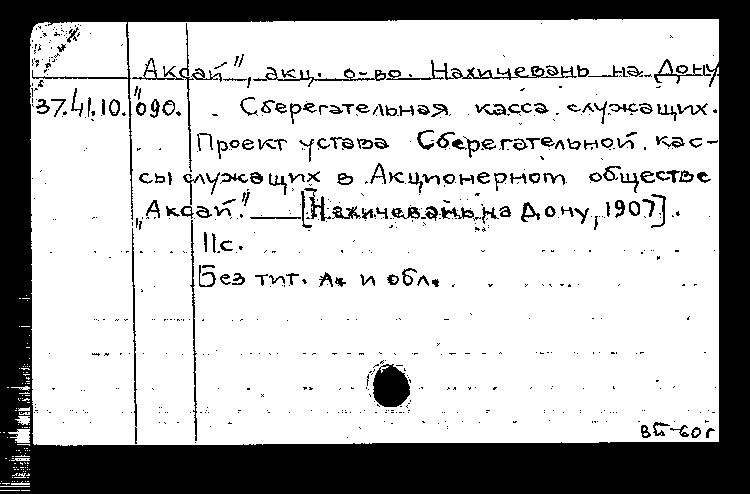 „Аксай", акц. о-во. Нахичевань на Дону
37.41.10.090. Сберегательная касса служащих.
Проект устава Сберегательной кас-
сы служащих в Акционерном обществе
„Аксай." [Нахичевань на Дону, 1907].
11с.
Без тит. л. и обл.
ВП-60г